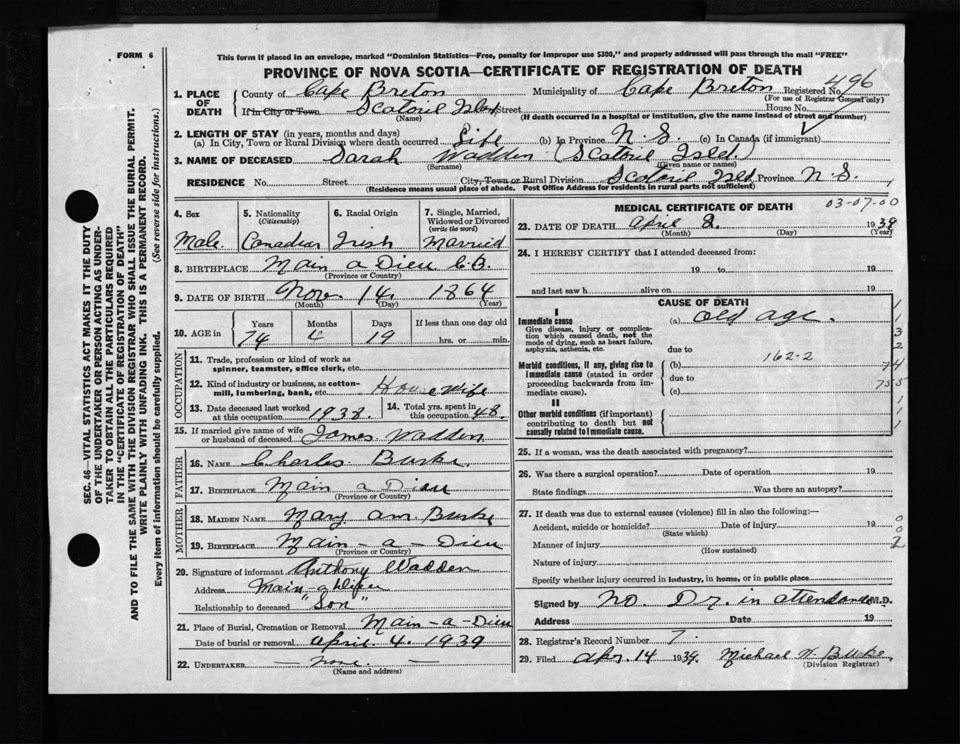 FORM 6
This form if placed in an envelope, marked "Dominion Statistics—Free, penalty for improper use $300," and properly addressed will pass through the mail "FREE"
PROVINCE OF NOVA SCOTIA—CERTIFICATE OF REGISTRATION OF DEATH
496
1. PLACE OF DEATH
County of Cape Breton Municipality of Cape Breton Registered No.
(For use of Registrar General only)
If in City or Town Scatorie Isld Street House No.
(Name) (If death occurred in a hospital or institution, give the name instead of street and number)
2. LENGTH OF STAY (in years, months and days)
(a) In City, Town or Rural Division where death occurred Life (b) In Province N.S. (c) In Canada (if immigrant)
3. NAME OF DECEASED Sarah Wadden (Scatorie Isld.)
(Surname) (Given name or names)
RESIDENCE No. Street City, Town or Rural Division Scatorie Isld Province N.S.
(Residence means usual place of abode. Post Office Address for residents in rural parts not sufficient)
4. Sex
5. Nationality (Citizenship)
6. Racial Origin
7. Single, Married, Widowed or Divorced (write the word)
Male. Canadian Irish Married
8. BIRTHPLACE Main a Dieu C.B.
(Province or Country)
9. DATE OF BIRTH Nov. 14. 1864
(Month) (Day) (Year)
10. AGE in Years Months Days If less than one day old
74 4 19 hrs. or min.
OCCUPATION
11. Trade, profession or kind of work as spinner, teamster, office clerk, etc.
12. Kind of industry or business, as cotton-mill, lumbering, bank, etc. House wife
13. Date deceased last worked at this occupation 1938. 14. Total yrs. spent in this occupation 48.
15. If married give name of wife or husband of deceased James Wadden
FATHER
16. NAME Charles Burke.
17. BIRTHPLACE Main a Dieu
(Province or Country)
MOTHER
18. MAIDEN NAME Mary ann Burke
19. BIRTHPLACE Main-a-Dieu
(Province or Country)
20. Signature of informant Anthony Wadden
Address Main a Dieu
Relationship to deceased "Son"
21. Place of Burial, Cremation or Removal Main-a-Dieu
Date of burial or removal April 4. 1939
22. UNDERTAKER — none —
(Name and address)
MEDICAL CERTIFICATE OF DEATH 03-07-00
23. DATE OF DEATH April 2. 1939
(Month) (Day) (Year)
24. I HEREBY CERTIFY that I attended deceased from:
19 to 19
and last saw h alive on 19
CAUSE OF DEATH
I
Immediate cause
Give disease, injury or complication which caused death, not the mode of dying, such as heart failure, asphyxia, asthenia, etc.
(a) Old age.
due to
Morbid conditions, if any, giving rise to immediate cause (stated in order proceeding backwards from immediate cause).
162-2
(b)
due to
(c)
II
Other morbid conditions (if important) contributing to death but not causally related to immediate cause.
1
3
2
74
755
1
1
1
25. If a woman, was the death associated with pregnancy?
26. Was there a surgical operation? Date of operation 19
State findings Was there an autopsy?
27. If death was due to external causes (violence) fill in also the following:—
Accident, suicide or homicide? Date of injury 19
(State which)
Manner of injury
(How sustained)
0
0
2
Nature of injury
Specify whether injury occurred in industry, in home, or in public place
Signed by No. Dr. in attendance M.D.
Address Date 19
28. Registrar's Record Number 7.
29. Filed Apr. 14 1939. Michael W. Burke
(Division Registrar)
SEC. 46—VITAL STATISTICS ACT MAKES IT THE DUTY
OF THE UNDERTAKER OR PERSON ACTING AS UNDER-
TAKER TO OBTAIN ALL THE PARTICULARS REQUIRED
IN THE "CERTIFICATE OF REGISTRATION OF DEATH"
AND TO FILE THE SAME WITH THE DIVISION REGISTRAR WHO SHALL ISSUE THE BURIAL PERMIT.
WRITE PLAINLY WITH UNFADING INK. THIS IS A PERMANENT RECORD.
Every item of information should be carefully supplied. (See reverse side for instructions.)